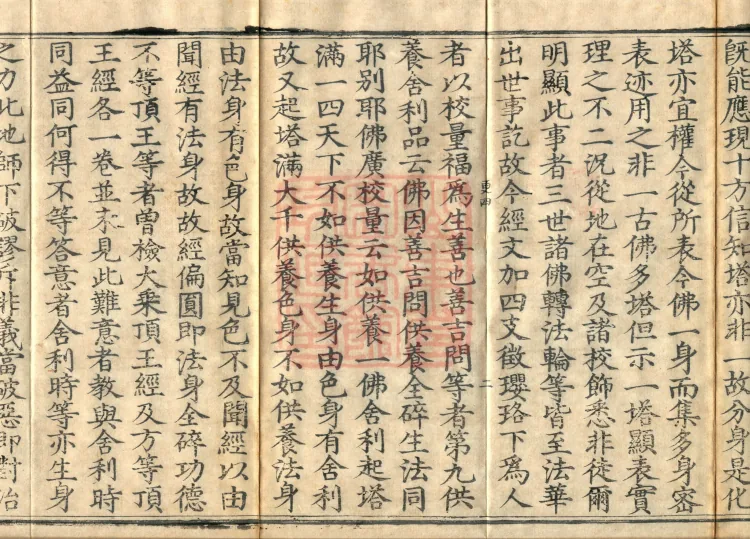 既能應現十方信知塔亦非一故分身是化
塔亦宜權今從所表今佛一身而集多身密
表迹用之非一古佛多塔但示一塔顯表實
理之不二況從地在空及諸校飾悉非徒爾
明顯此事者三世諸佛轉法輪等皆至法華
出世事訖故今經文加四支徵瓔珞下為人
者以校量福為生善也善吉問等者第九供
養舍利品云佛因善吉問供養全碎生法同
耶別耶佛廣校量云如供養一佛舍利起塔
滿一四天下不如供養生身由色身有舍利
故又起塔滿大千供養色身不如供養法身
由法身有色身故當知見色不及聞經以由
聞經有法身故故經偏圓即法身全碎功德
不等頂王等者曾檢大乘頂王經及方等頂
王經各一卷並未見此難意者教與舍利時
同益同何得不等答意者舍利時等亦生身
之力此地師下破謬斥非議當破惡即對治